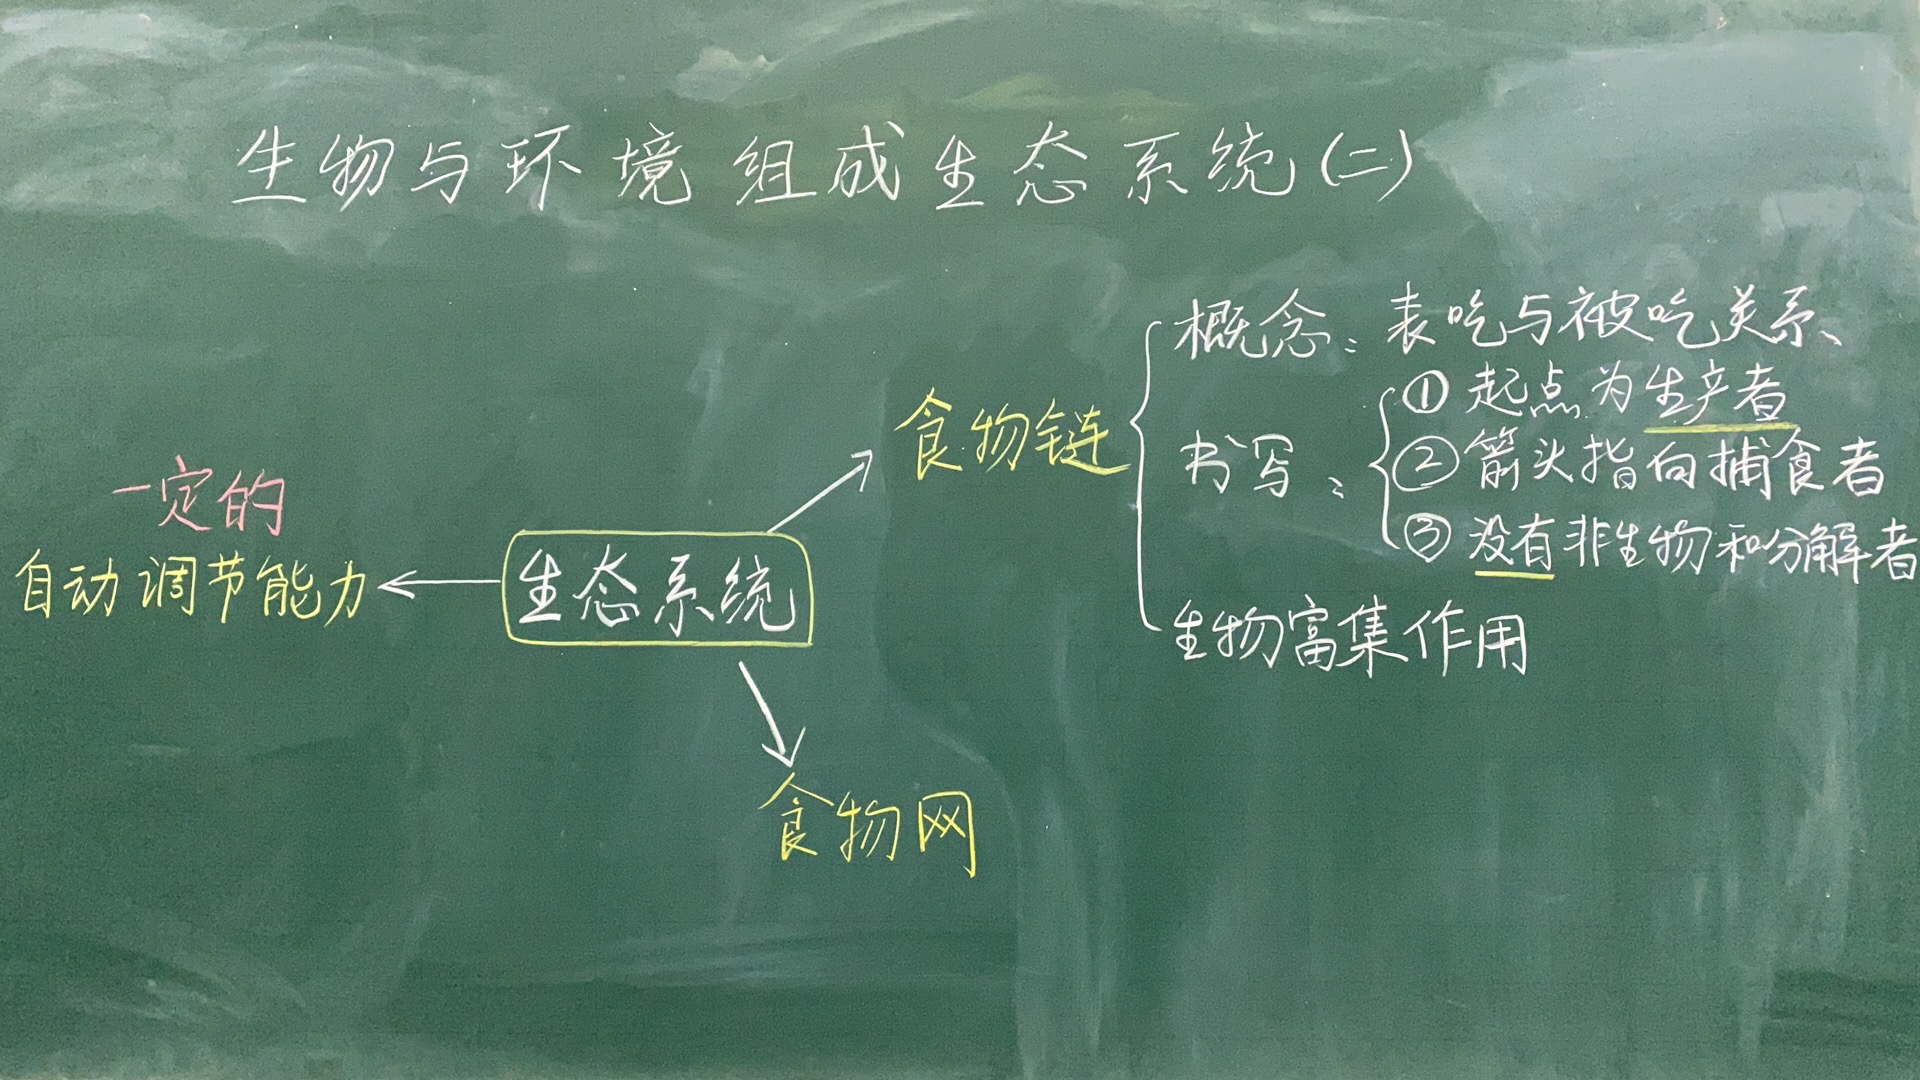 生物与环境组成生态系统(二)
一定的
自动调节能力
生态系统
食物链
概念:表吃与被吃关系、
书写:
①起点为生产者
②箭头指向捕食者
③没有非生物和分解者
生物富集作用
食物网